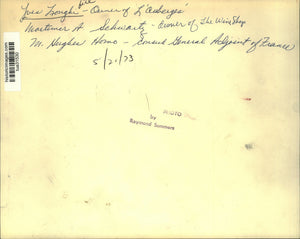 Owner of L'Auberge
Mortimer A. Schwartz - Owner of The Wine Shop
M. Home - Consul General Adjoint of France
5/21/73
PHOTO
by
Raymond Summers